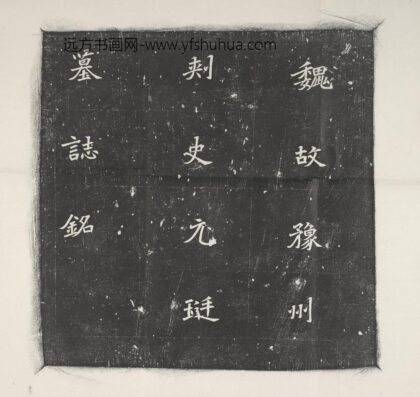 远方书画网-www.yfshuhua.com
魏故豫州
刺史元珽
墓誌銘